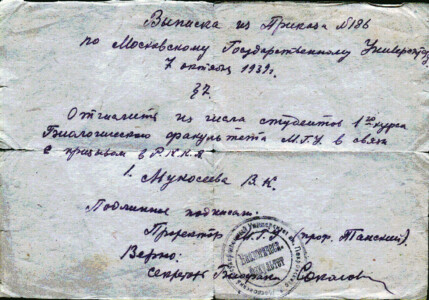 Выписка из Приказа №186
по Московскому Государственному Университету
7 октября 1939г.
§7.
Отчислить из числа студентов 1го курса
Биологического факультета М.Г.У. в связи
с призывом в Р.К.К.А
1. Мукосеева В.К.
Подлинное подписал:
Проректор М.Г.У. (проф. Танский).
Верно:
секретарь Соколов